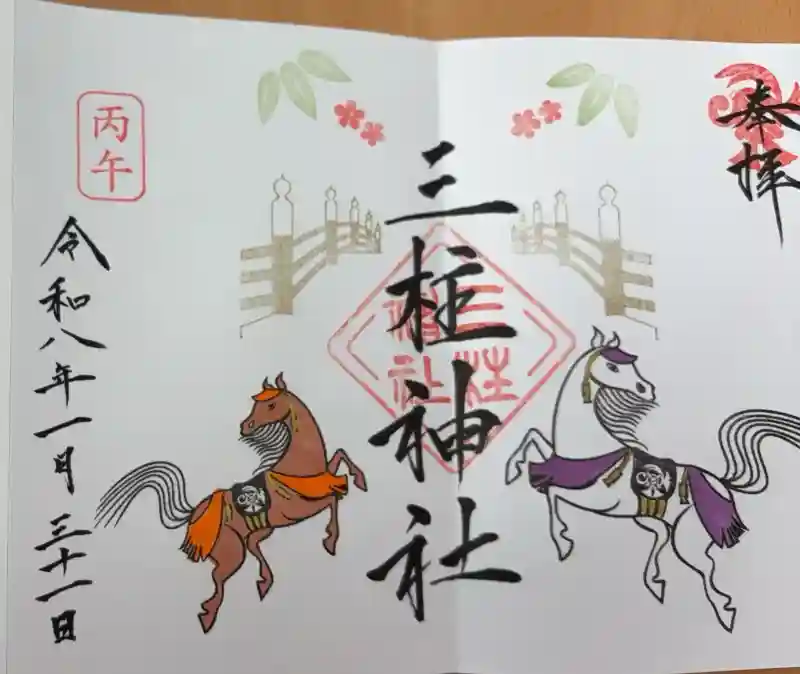 奉拝
三柱神社
三柱神社
丙午
令和八年一月三十一日